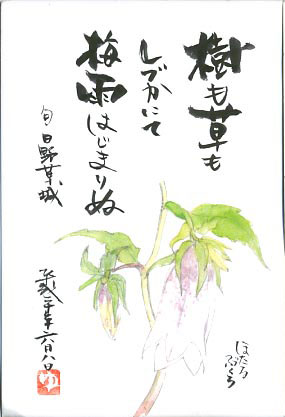 樹も草も
しづかにて
梅雨はじまりぬ
句 日野草城
六月八日
ほたる
ぶくろ
ゆ